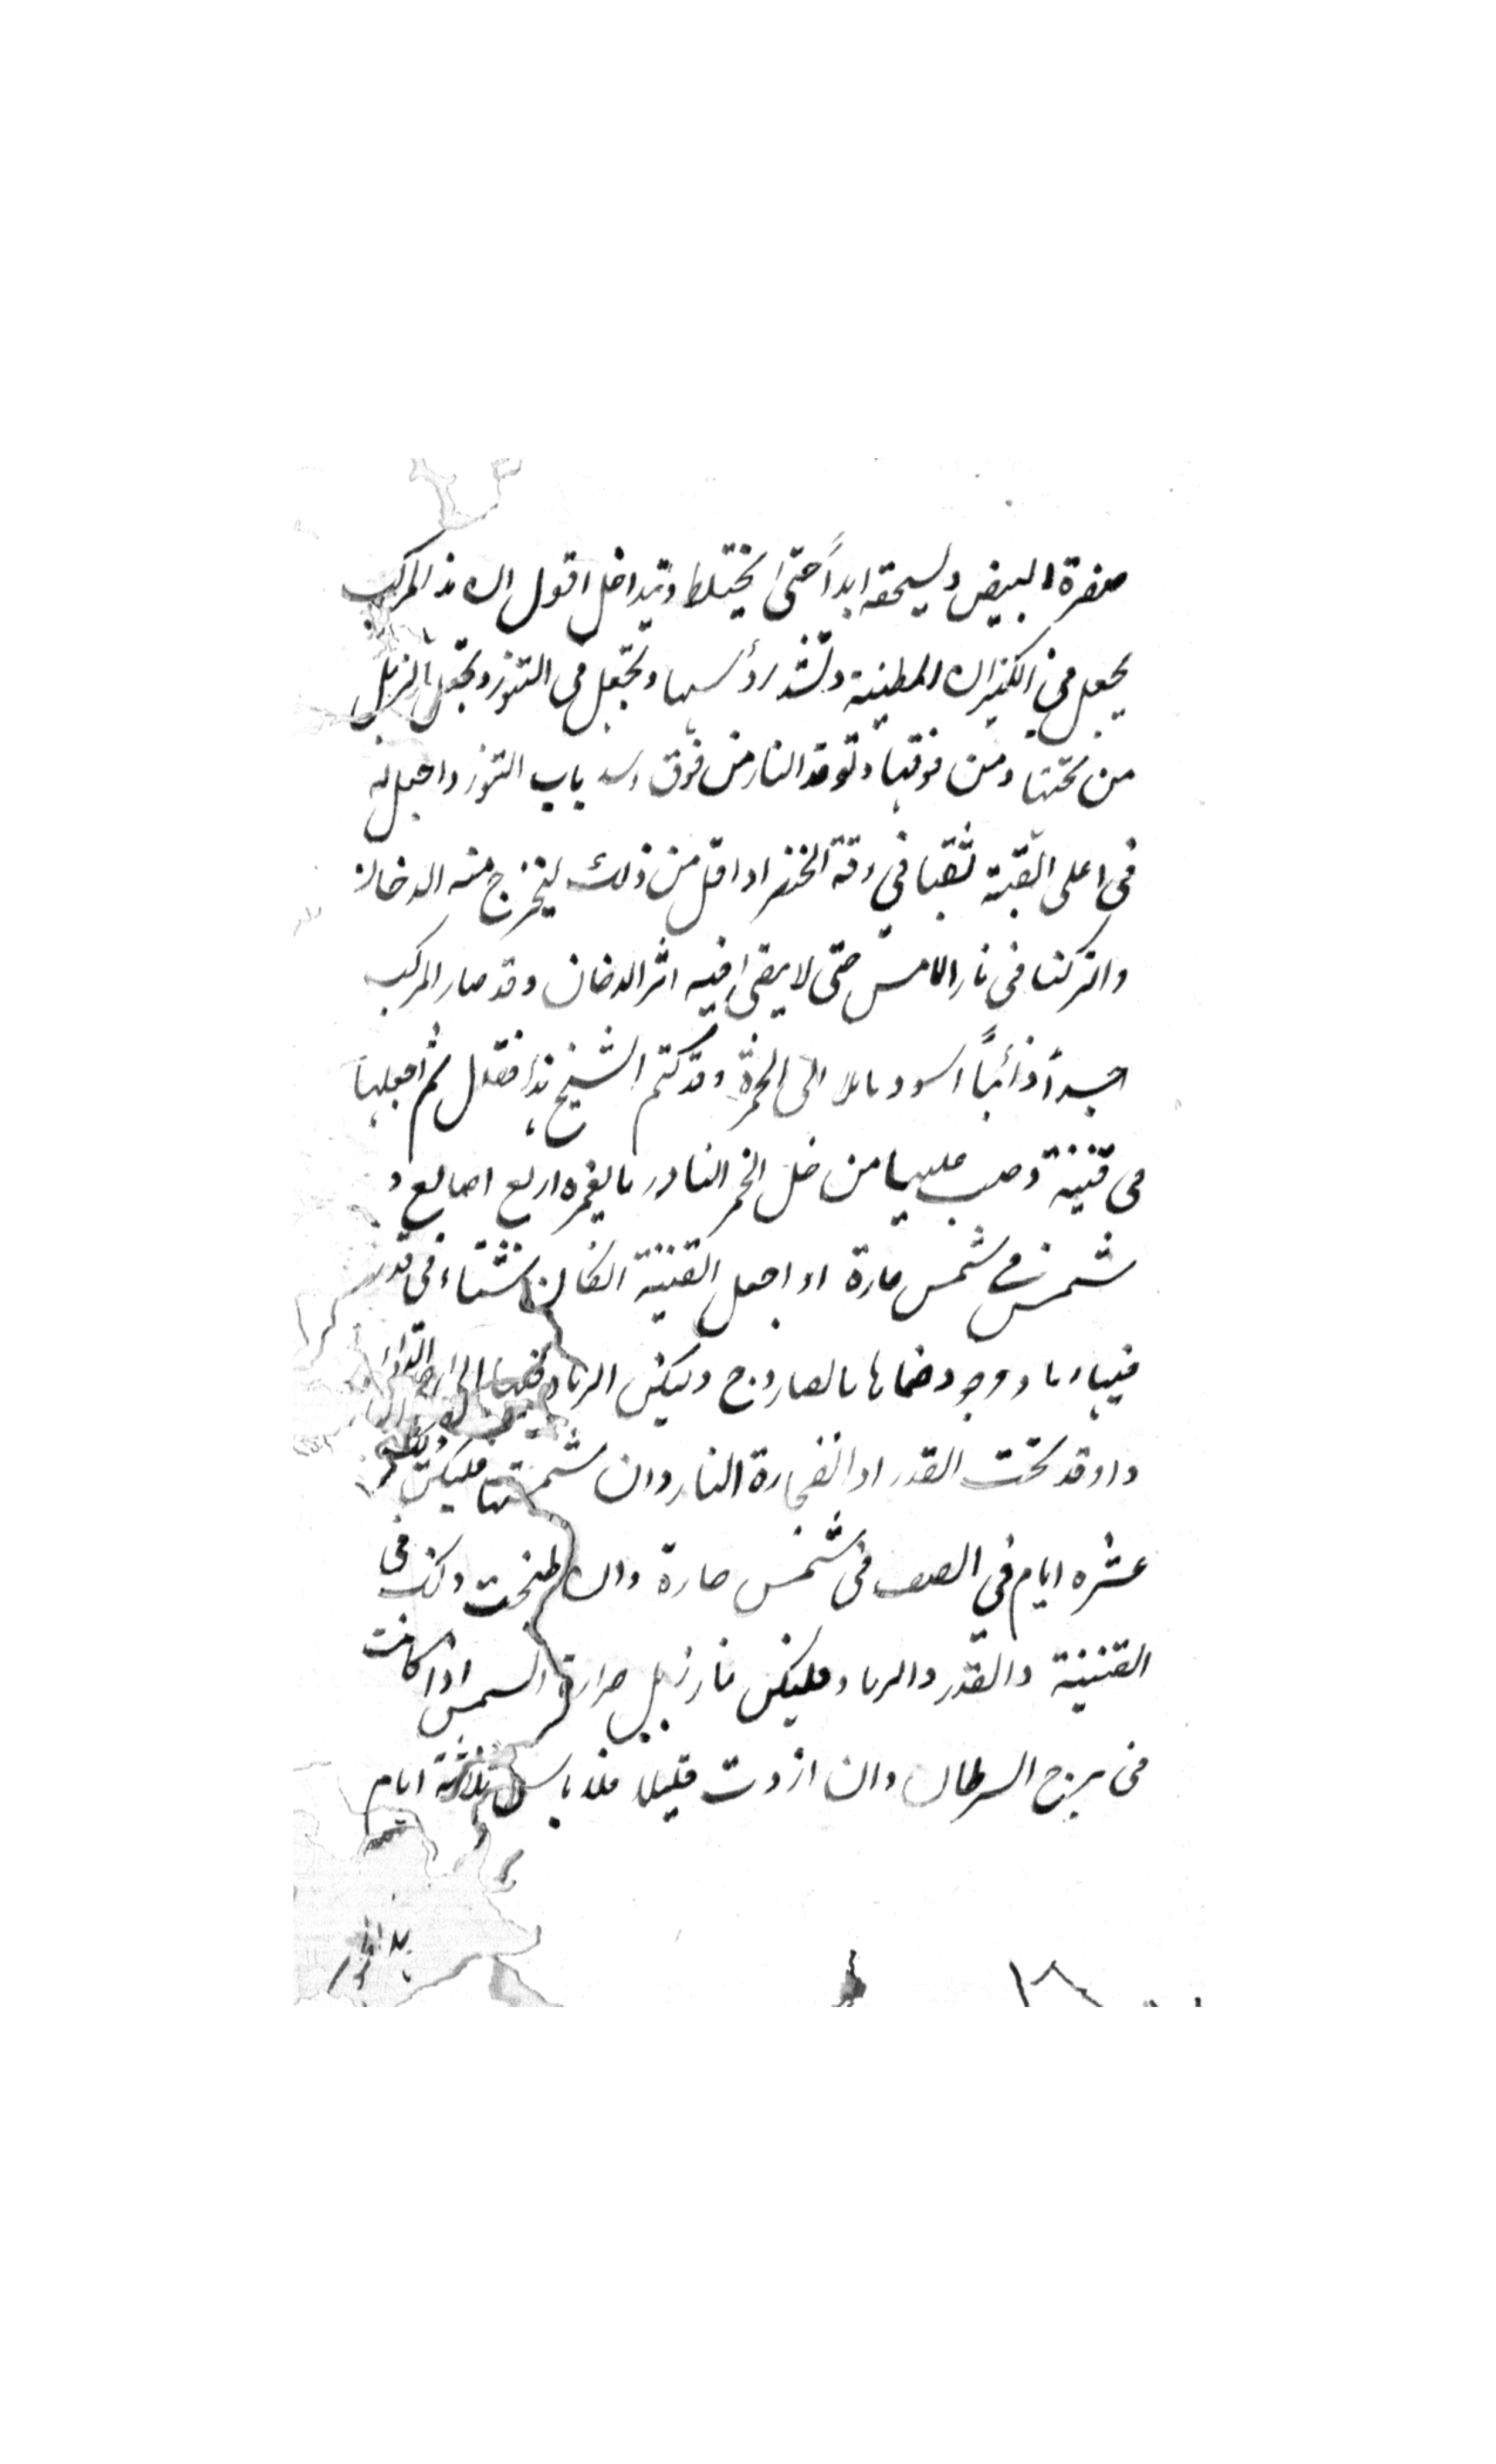 صفرة البيض وليسحقه ابداً حتى يختلط وتيداخل اقول ان هذا المركب
يجعل في الكيزان المطينة وتشد رؤسها وتجعل في التنور وتجعل بالزبل
من تحتها ومن فوقها وتوقد النار من فوق وسد باب التنور واجعل له
في اعلى القبة ثقبا في رقة الخنصر او اقل من ذلك ليخرج منه الدخان
واتركنا في نار الامس حتى لا يبقى فيه اثر الدخان وقد صار المركب
جسداً ذائباً اسود مائلا الى الحمرة وقد كتم الشيخ هذا فقال ثم اجعلها
في قنينة وصب عليها من خل الخمر النادر ما يغمره اربع اصابع و
شمس في شمس حارة او اجعل القنينة انكان شتاء في قدر
فيها رماد وجود ضمانها بالصاروج وليكن الرماد فيها الى الدواء
واوقد تحت القدر او الفخارة النار وان شمستها فليكن
عشره ايام في الصيف في شمس حارة وان طبخت ذلك في
القنينة والقدر والرماد فليكن نار زبل حرارة الشمس اذا كانت
في برج السرطان وان ازدت قليلا فلا باس ثلاثة ايام